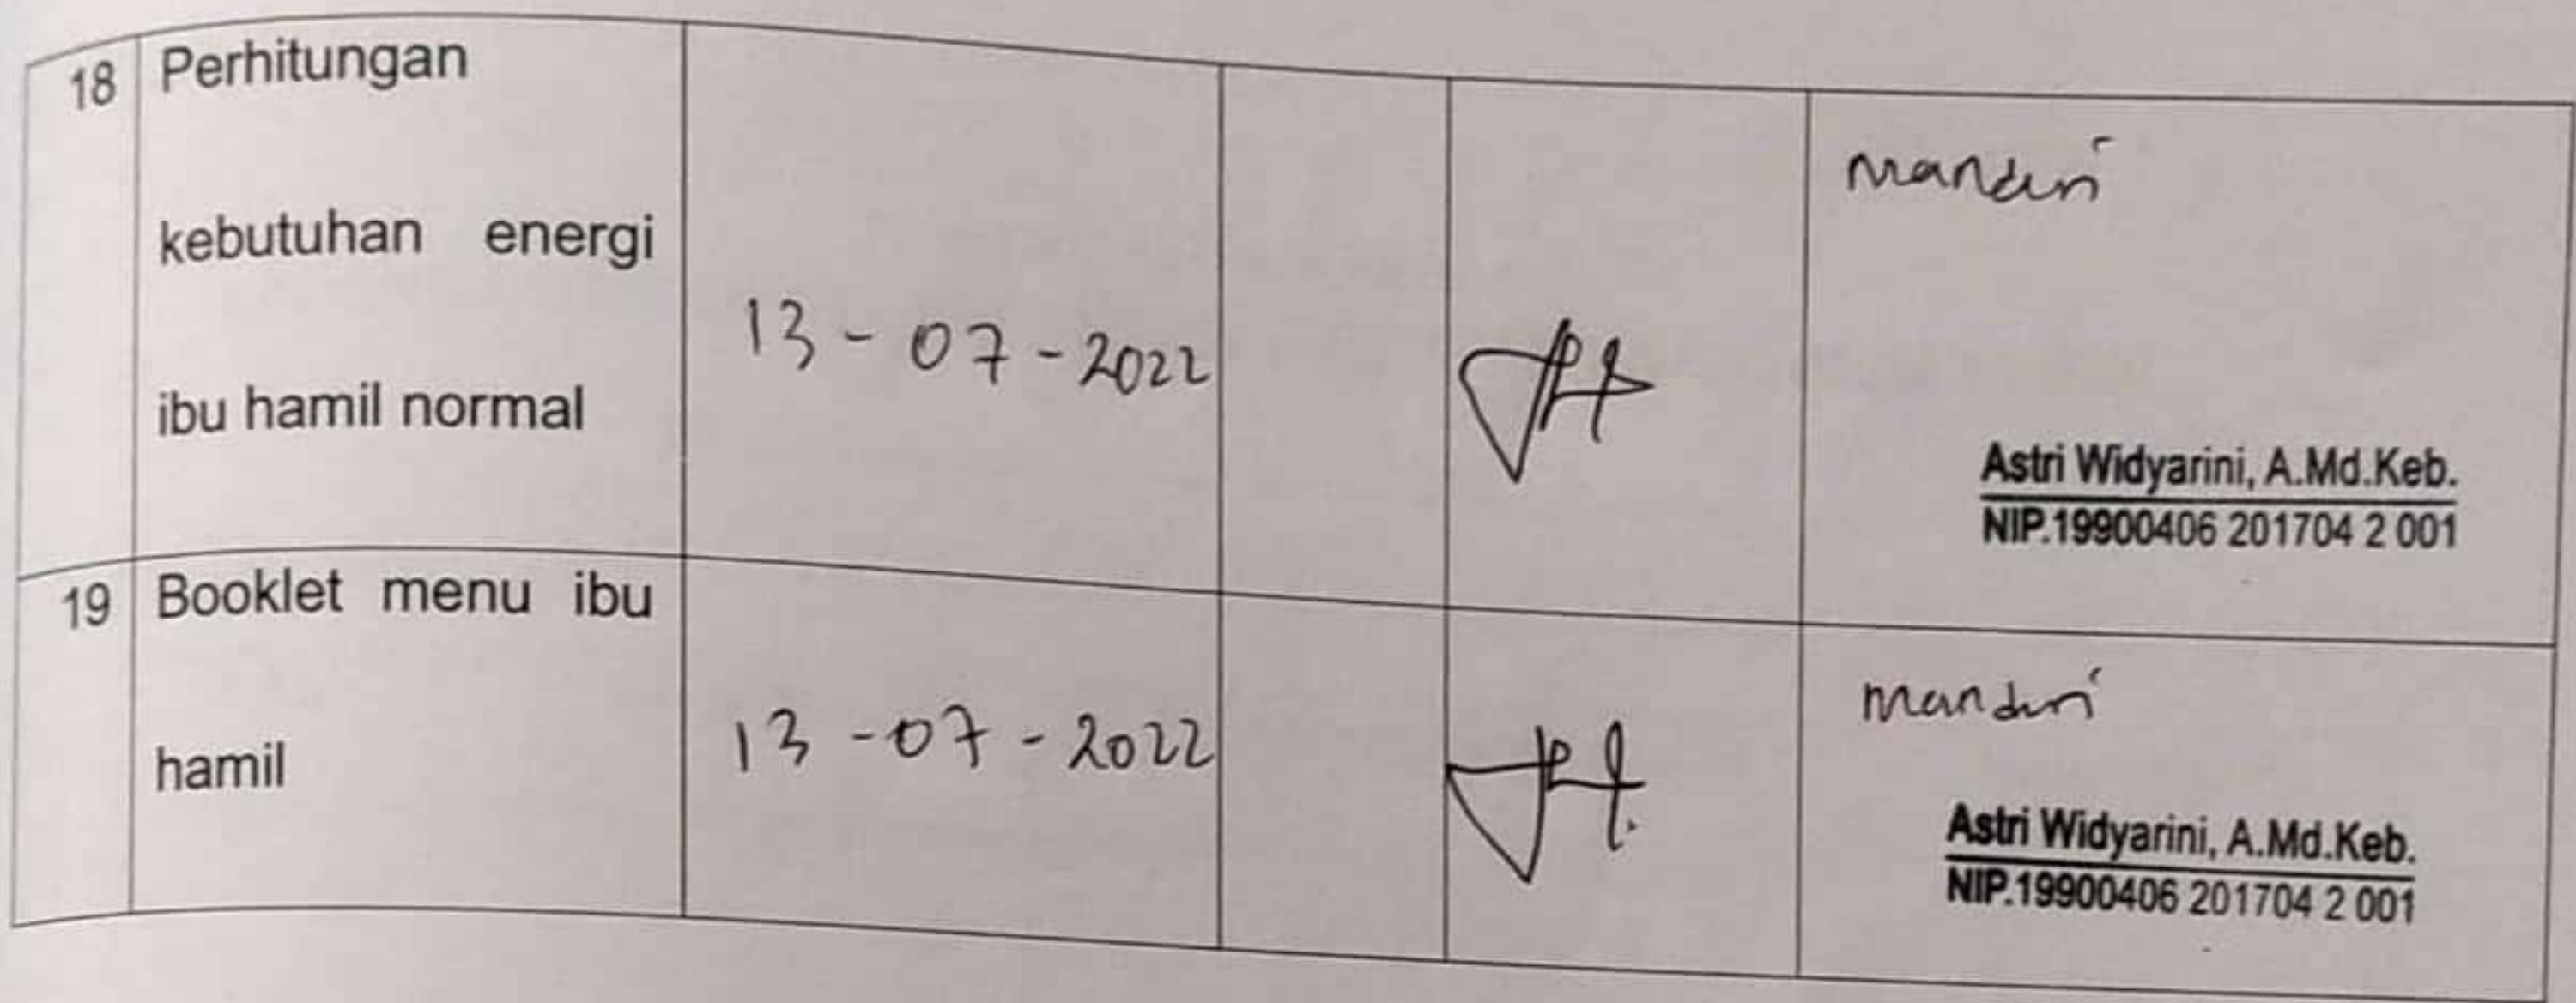 18 Perhitungan
kebutuhan energi
ibu hamil normal
13 - 07 - 2022
mandiri
Astri Widyarini, A.Md.Keb.
NIP.19900406 201704 2 001
19 Booklet menu ibu
hamil
13 - 07 - 2022
mandiri
Astri Widyarini, A.Md.Keb.
NIP.19900406 201704 2 001